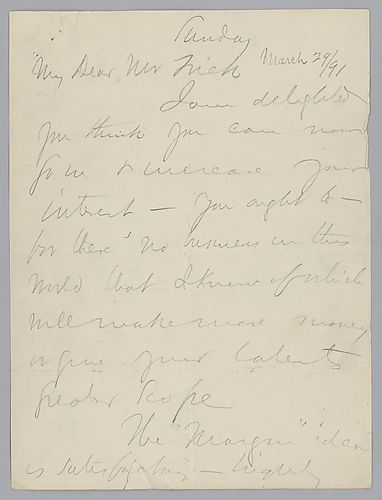 Sunday
March 29/91
My Dear Mr Frick
I am delighted
you think you can now
go in & increase your
interest — you ought to —
for there's no business in this
world that I know of which
will make more money
or give your talents
greater scope
The "Margin" idea
is satisfactory — highly